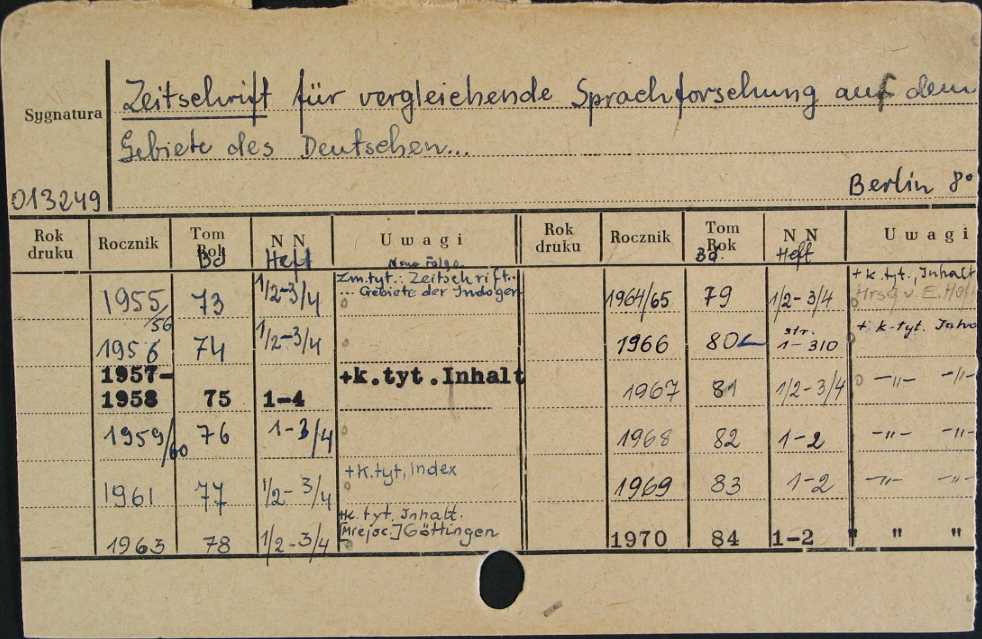 Zeitschrift für vergleichende Sprachforschung auf dem
Sygnatura
Gebiete des Deutschen...
013249
Berlin 8°
Rok druku Rocznik Tom Rok Bd N N Heft Uwagi Rok druku Rocznik Tom Rok Bd. N N Heft Uwagi
Neue Folge
1955/56 73 1/2-3/4 Zm.tyt.: Zeitschrift..
... Gebiete der Indoger
1964/65 79 1/2-3/4 +k.tyt., Inhalt
Hrsg v. E. Hof
1956 74 1/2-3/4
1966 80 str. 1-310 + k-tyt.
1957-1958 75 1-4 +k.tyt.Inhalt
1967 81 1/2-3/4 -"- -"-
1959/60 76 1-3/4
1968 82 1-2 -"- -"-
1961 77 1/2-3/4 +k.tyt, index
1969 83 1-2 -"- -"-
1963 78 1/2-3/4 +k. tyt. Inhalt.
[Miejsc.] Göttingen
1970 84 1-2 " " "